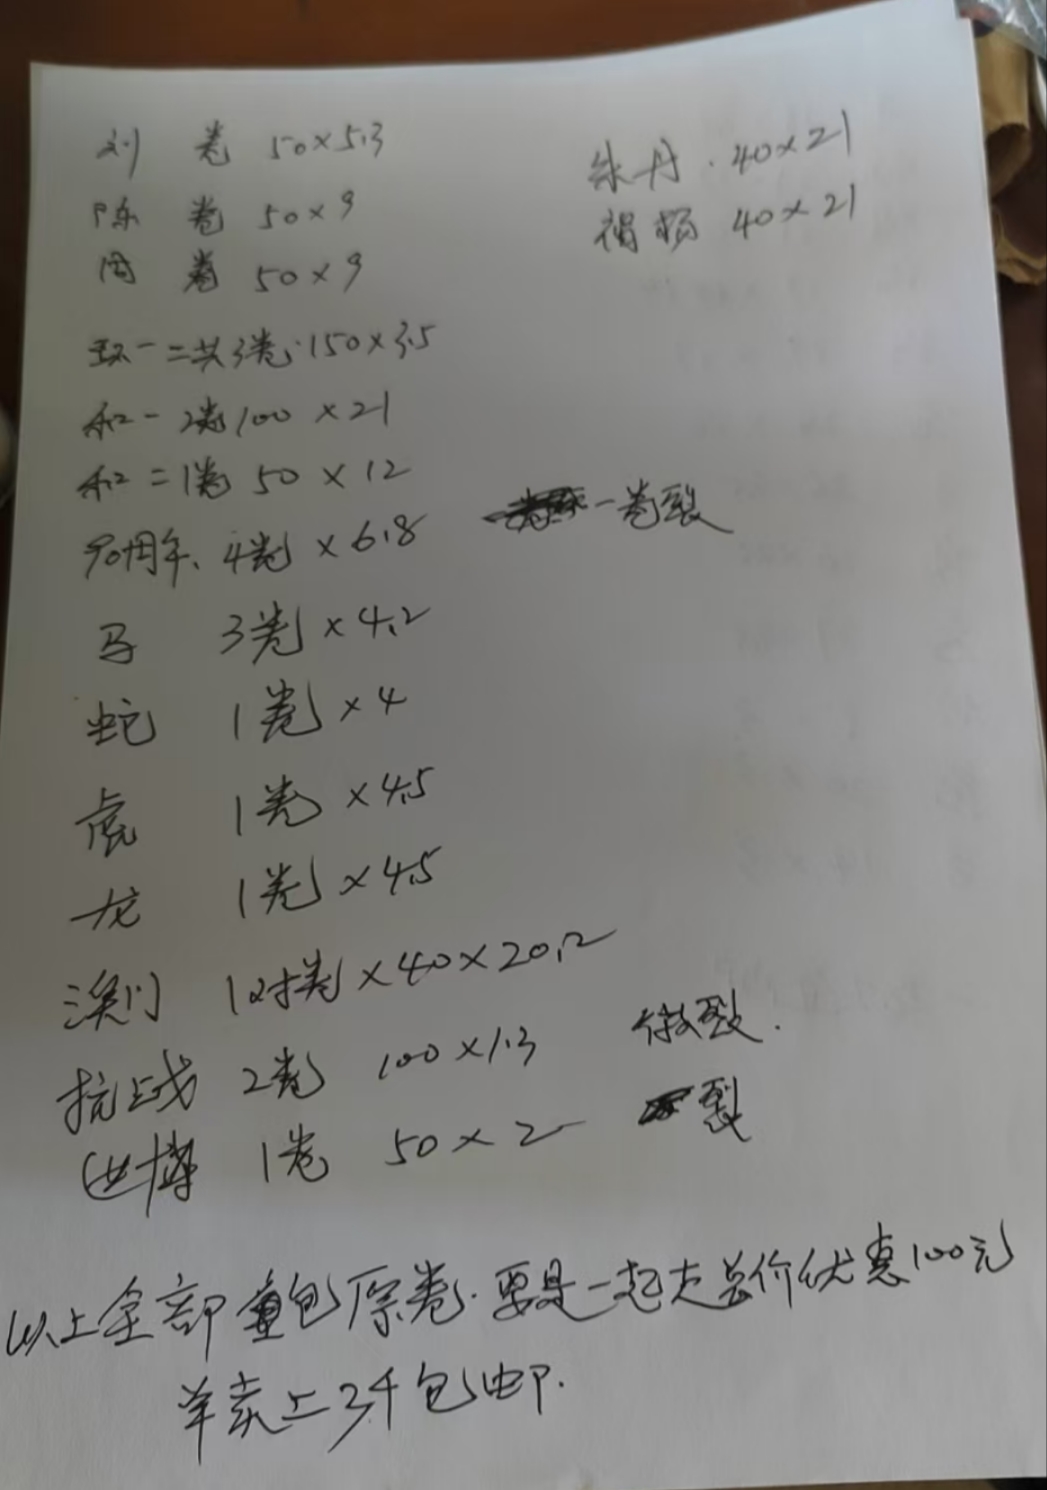 刘 卷 50×5.3
陈 卷 50×9
周 卷 50×9
环一二共3卷·150×3.5
和一2卷100×21
和二1卷50×12
90周年、4卷×6.8 一卷裂
马 3卷×4.2
蛇 1卷×4
虎 1卷×4.5
龙 1卷×4.5
澳门 1对卷×40×20.2
抗战 2卷 100×1.3 微裂.
世博 1卷 50×2 裂
以上全部 原卷.要是一起走总价优惠100元
单卖上3千包邮.
朱丹.40×21
褐 40×21